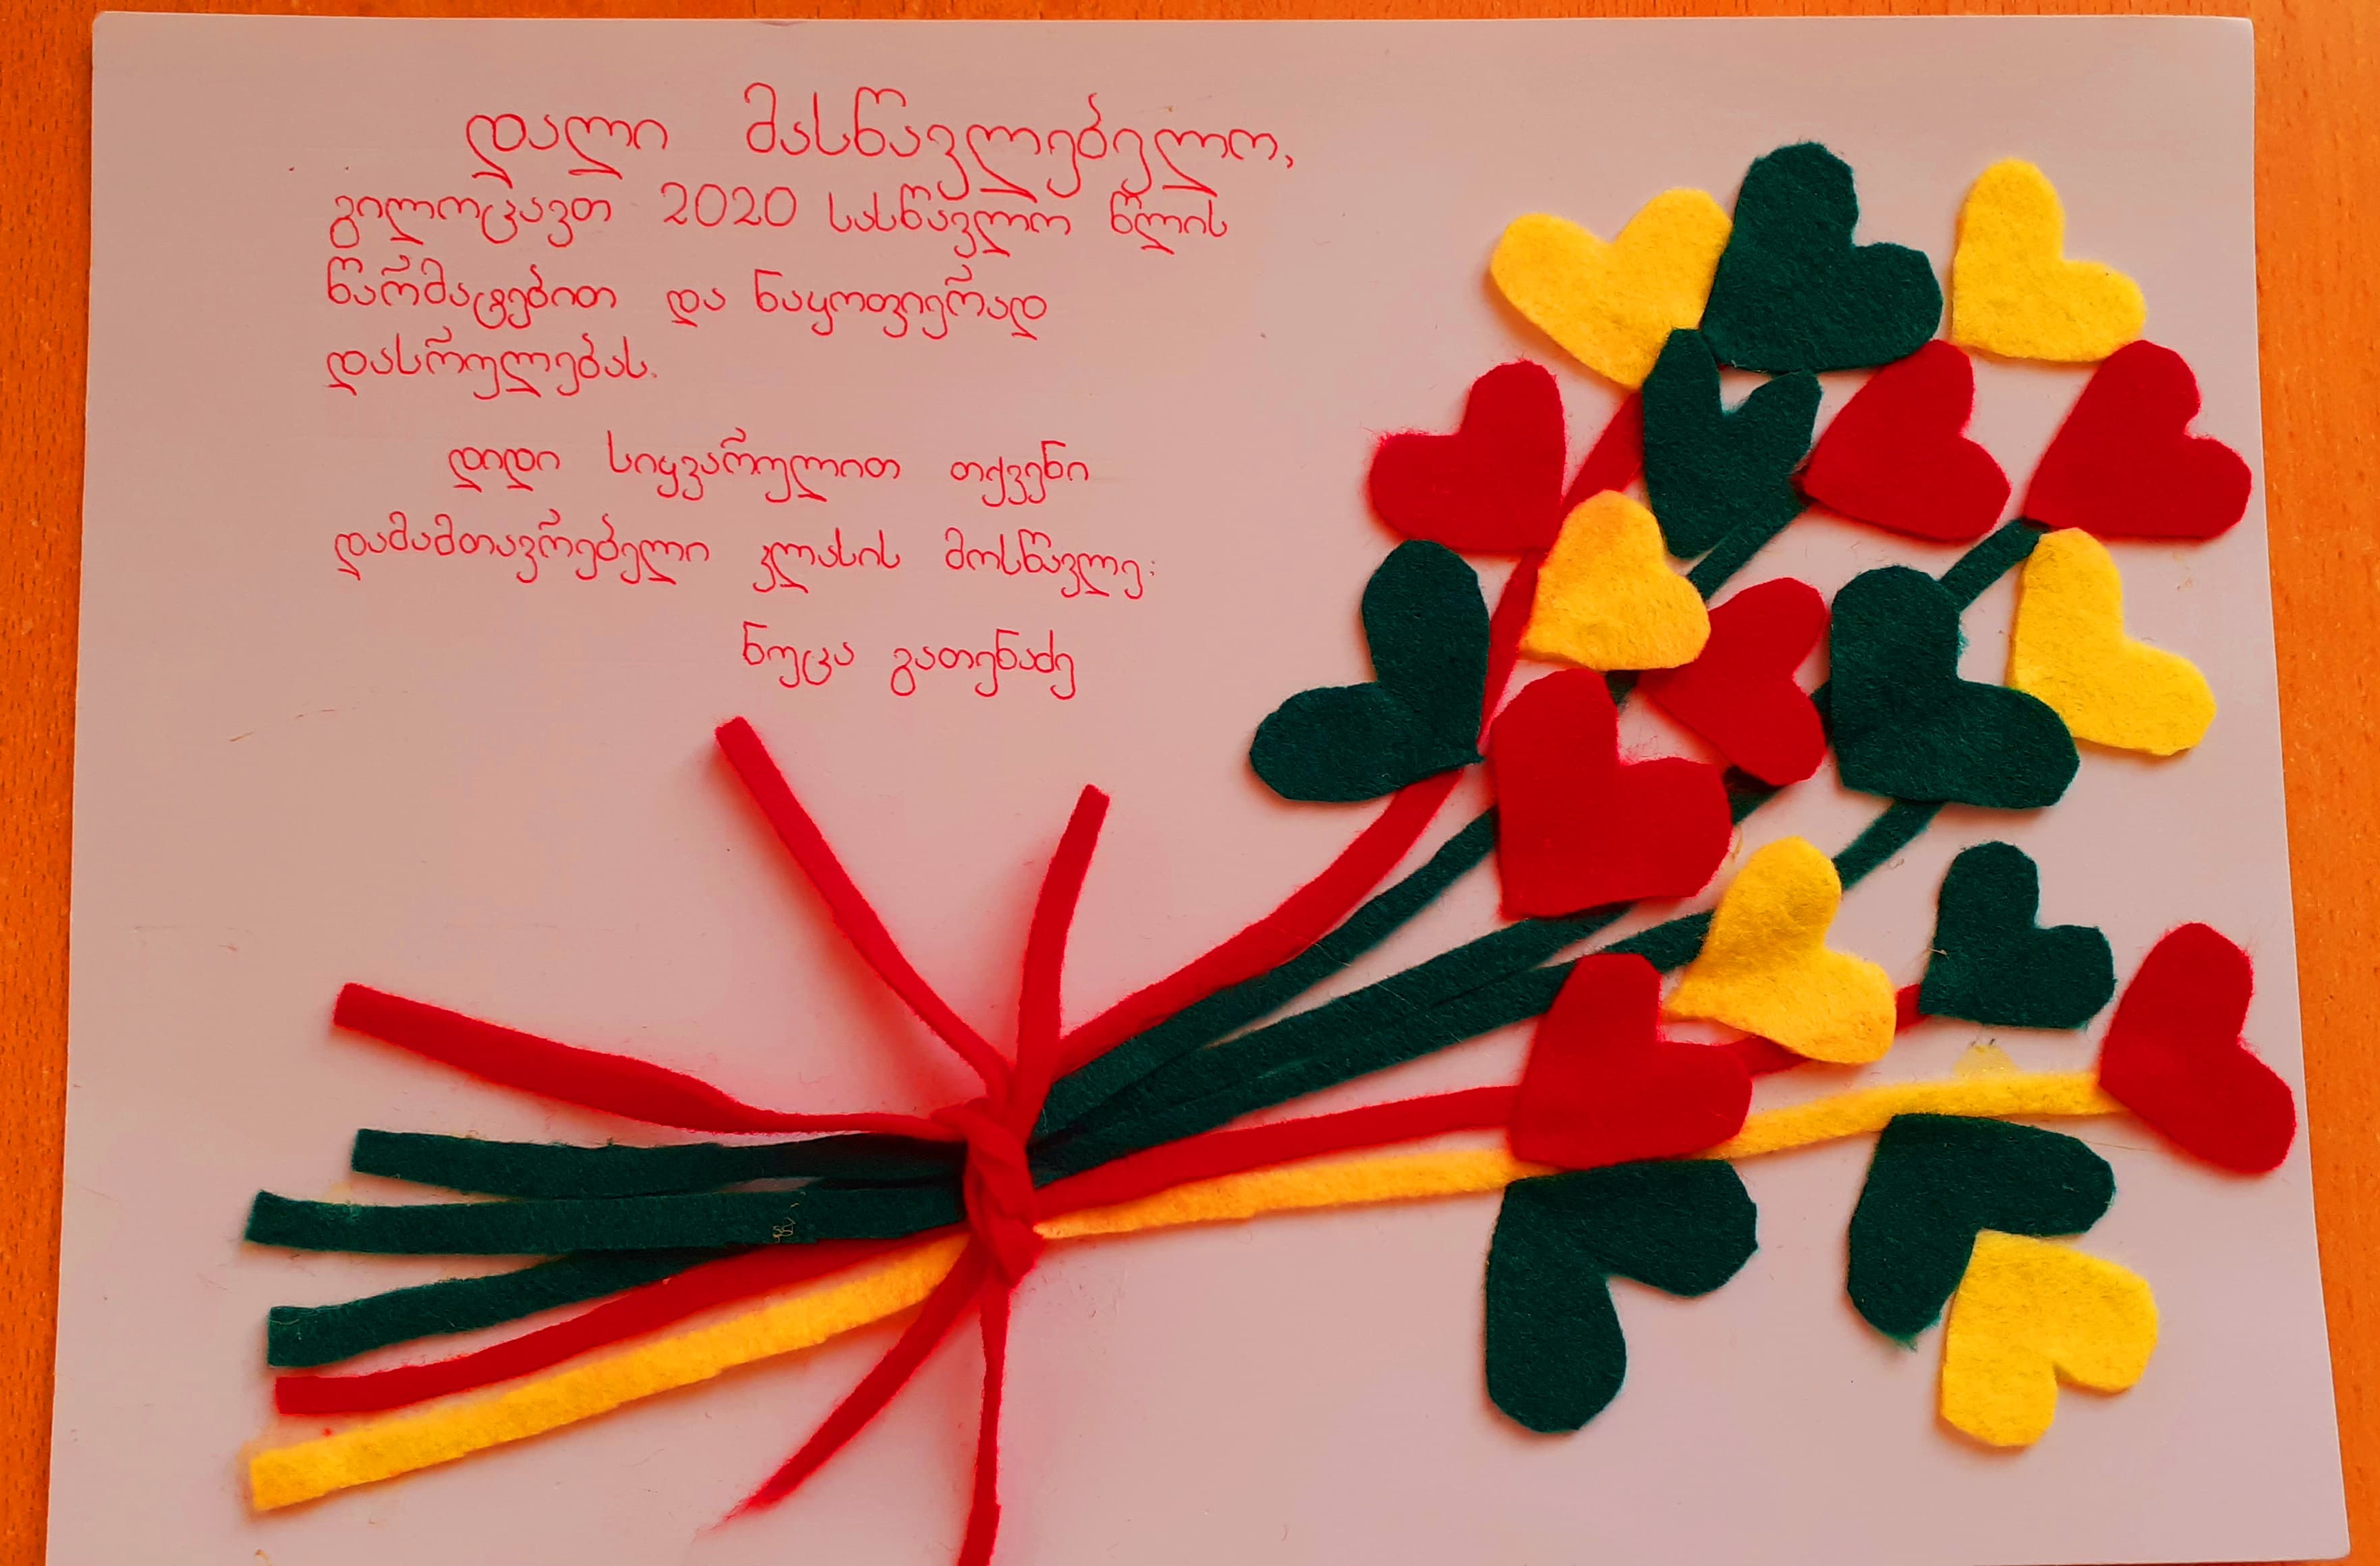 დალი მასწავლებელო,
გილოცავთ 2020 სასწავლო წლის
წარმატებით და ნაყოფიერად
დასრულებას.
დიდი სიყვარულით თქვენი
დამამთავრებელი კლასის მოსწავლე:
ნუცა გათენაძე